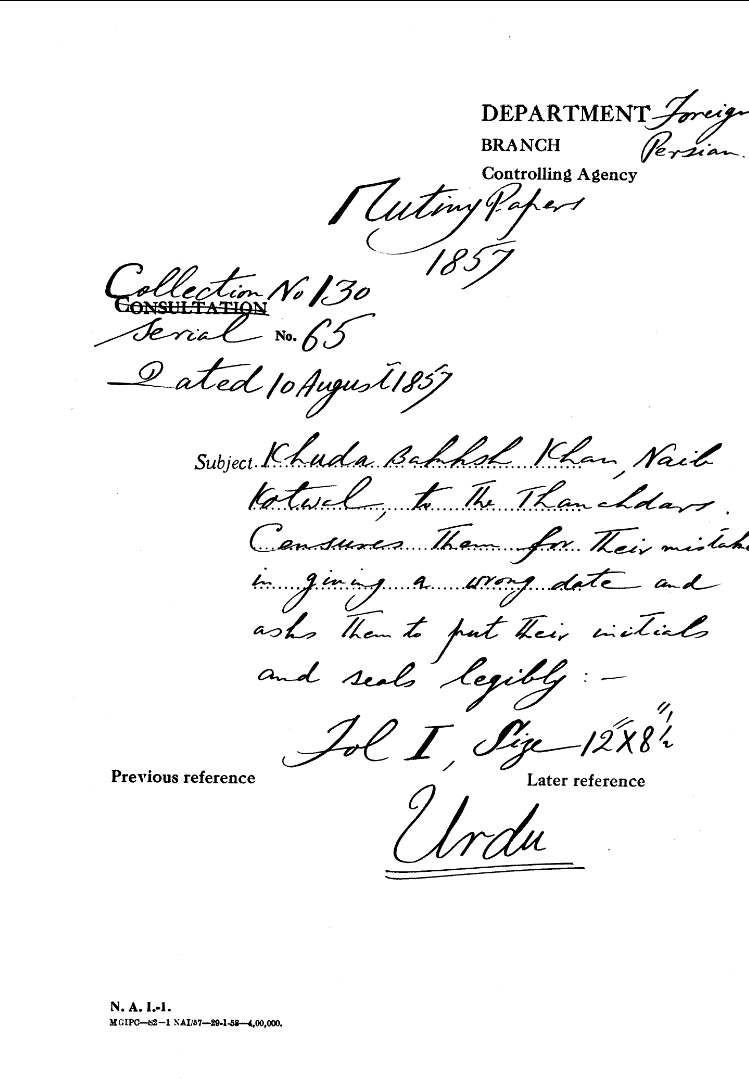 DEPARTMENT Foreign
BRANCH Persian.
Controlling Agency
Mutiny Papers
1857
Collection No 130
CONSULTATION
Serial No. 65
Dated 10 August 1857
Subject. Khuda Bakhsh Khan, Naib
Kotwal, to the Thanehdars.
Censures them for their mistake
in giving a wrong date and
asks them to put their initials
and seals legibly :—
Fol I, Size 12" X 8 1/2"
Previous reference Later reference
Urdu
N. A. I.-1.
MGIPC—S2—1 NAI/57—29-1-58—4,00,000.